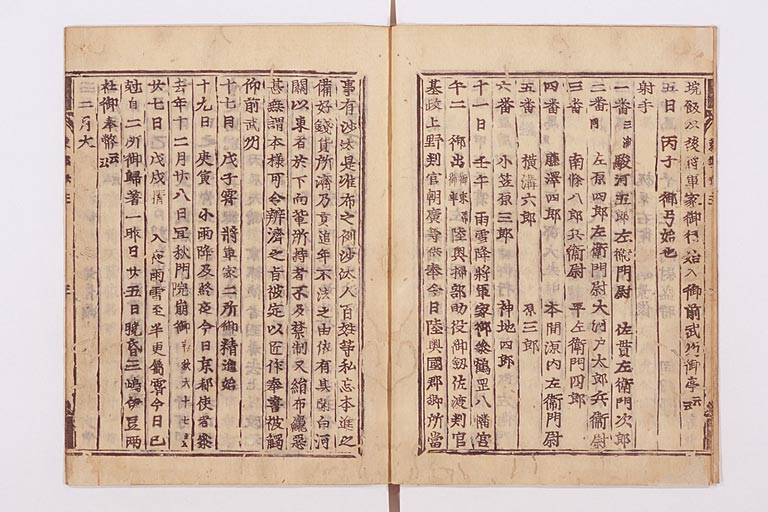 琬飯以後将軍家御行始入御前武州御亭云云
五日 丙子 御弓始也
射手
一番 三浦駿河五郎左衛門尉 佐貫左衛門次郎
二番 同左原四郎左衛門尉 大河戸太郎兵衛尉
三番 南條八郎兵衛尉 平左衛門四郎
四番 藤澤四郎 本間源内左衛門尉
五番 横溝六郎 原三郎
六番 小笠原三郎 神地四郎
十一日 壬午 雨雪降将軍家御参鶴罡八幡宮
午二 御出 陸奥掃部助役御劔佐渡判官
基政上野判官朝廣等供奉今日陸奥國郡郷所當
事有沙汰是准布之例沙汰人百姓等私忘本進之
備好錢貨所濟乃貢追年不法之由依有其聞白河
關以東者於下向輩所持者不及禁制又絹布麁惡
甚無謂本様可令辨濟之旨被定以匠作奉書被觸
仰前武州
十七日 戊子霽 將軍家二所御精進始
十九日 庚寅 小雨降及終夜今日京都使者参
去年十二月廿八日宜秋門院崩御 六十七云云
廿七日 戊戌晴 入夜雨雪至半更属霽今日巳
尅自二所御歸著一昨日廿五日曉昏三嶋伊豆兩
社御奉幣云云
二月大